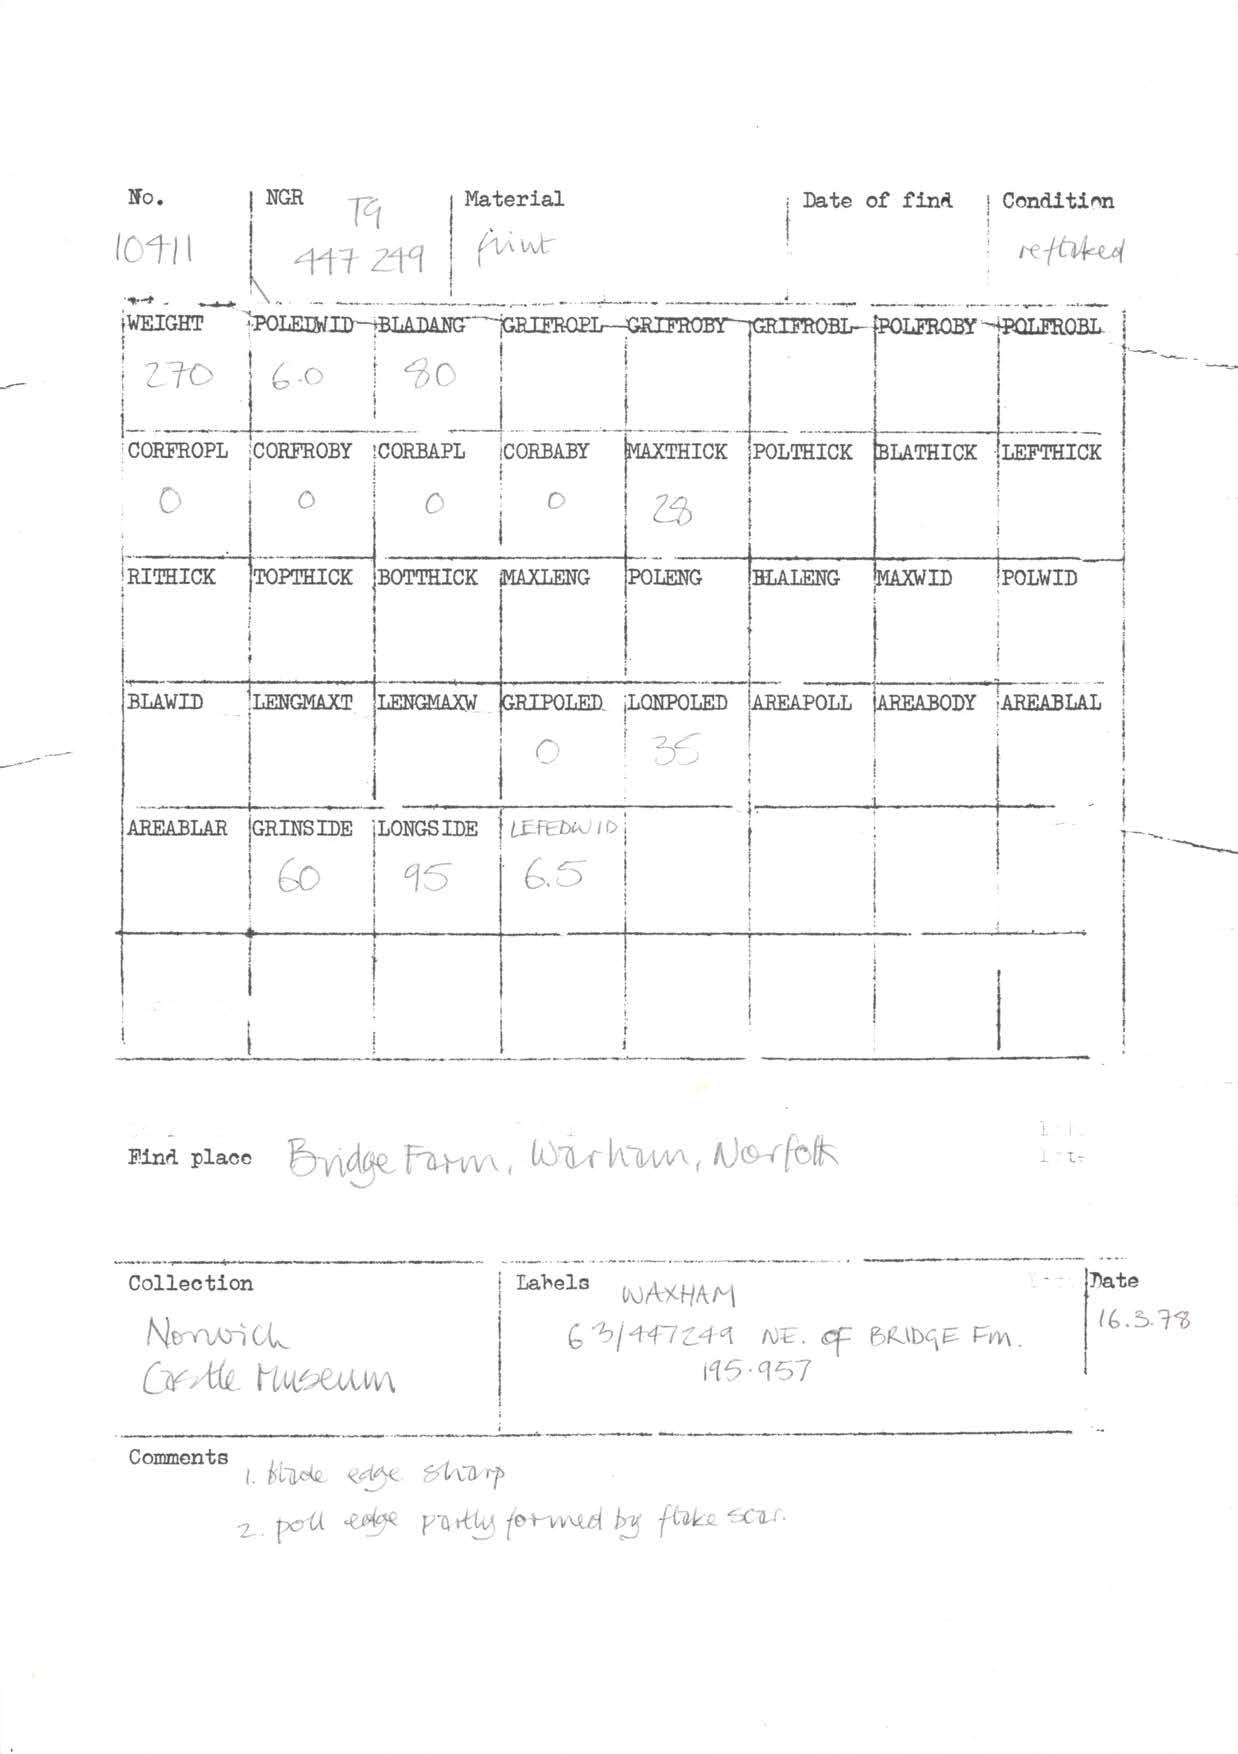 No. NGR Material Date of find Condition
10411 TG 447 249 flint reflaked
WEIGHT POLEDWID BLADANG GRIFROPL GRIFROBY GRIFROBL POLFROBY POLFROBL
270 6.0 80
CORFROPL CORFROBY CORBAPL CORBABY MAXTHICK POLTHICK BLATHICK LEFTHICK
0 0 0 0 28
RITHICK TOPTHICK BOTTHICK MAXLENG POLENG BLALENG MAXWID POLWID
BLAWID LENGMAXT LENGMAXW GRIPOLED LONPOLED AREAPOLL AREABODY AREABLAL
0 35
AREABLAR GRINSIDE LONGSIDE LEFEDWID
60 95 6.5
Find place Bridge Farm, Warham, Norfolk
Collection Labels WAXHAM Date
Norwich 63/447249 NE. OF BRIDGE Fm. 16.3.78
Castle Museum 195.957
Comments 1. blade edge sharp
2. poll edge partly formed by flake scar.